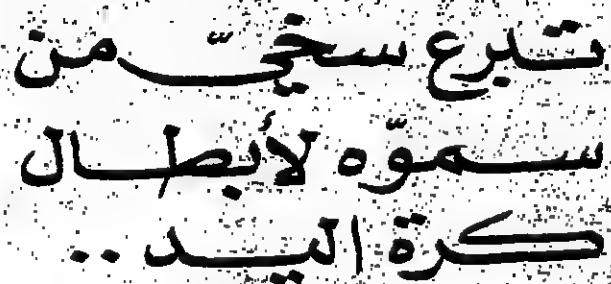 تبرع سخيّ من
سموّه لأبطال
كرة اليد ..